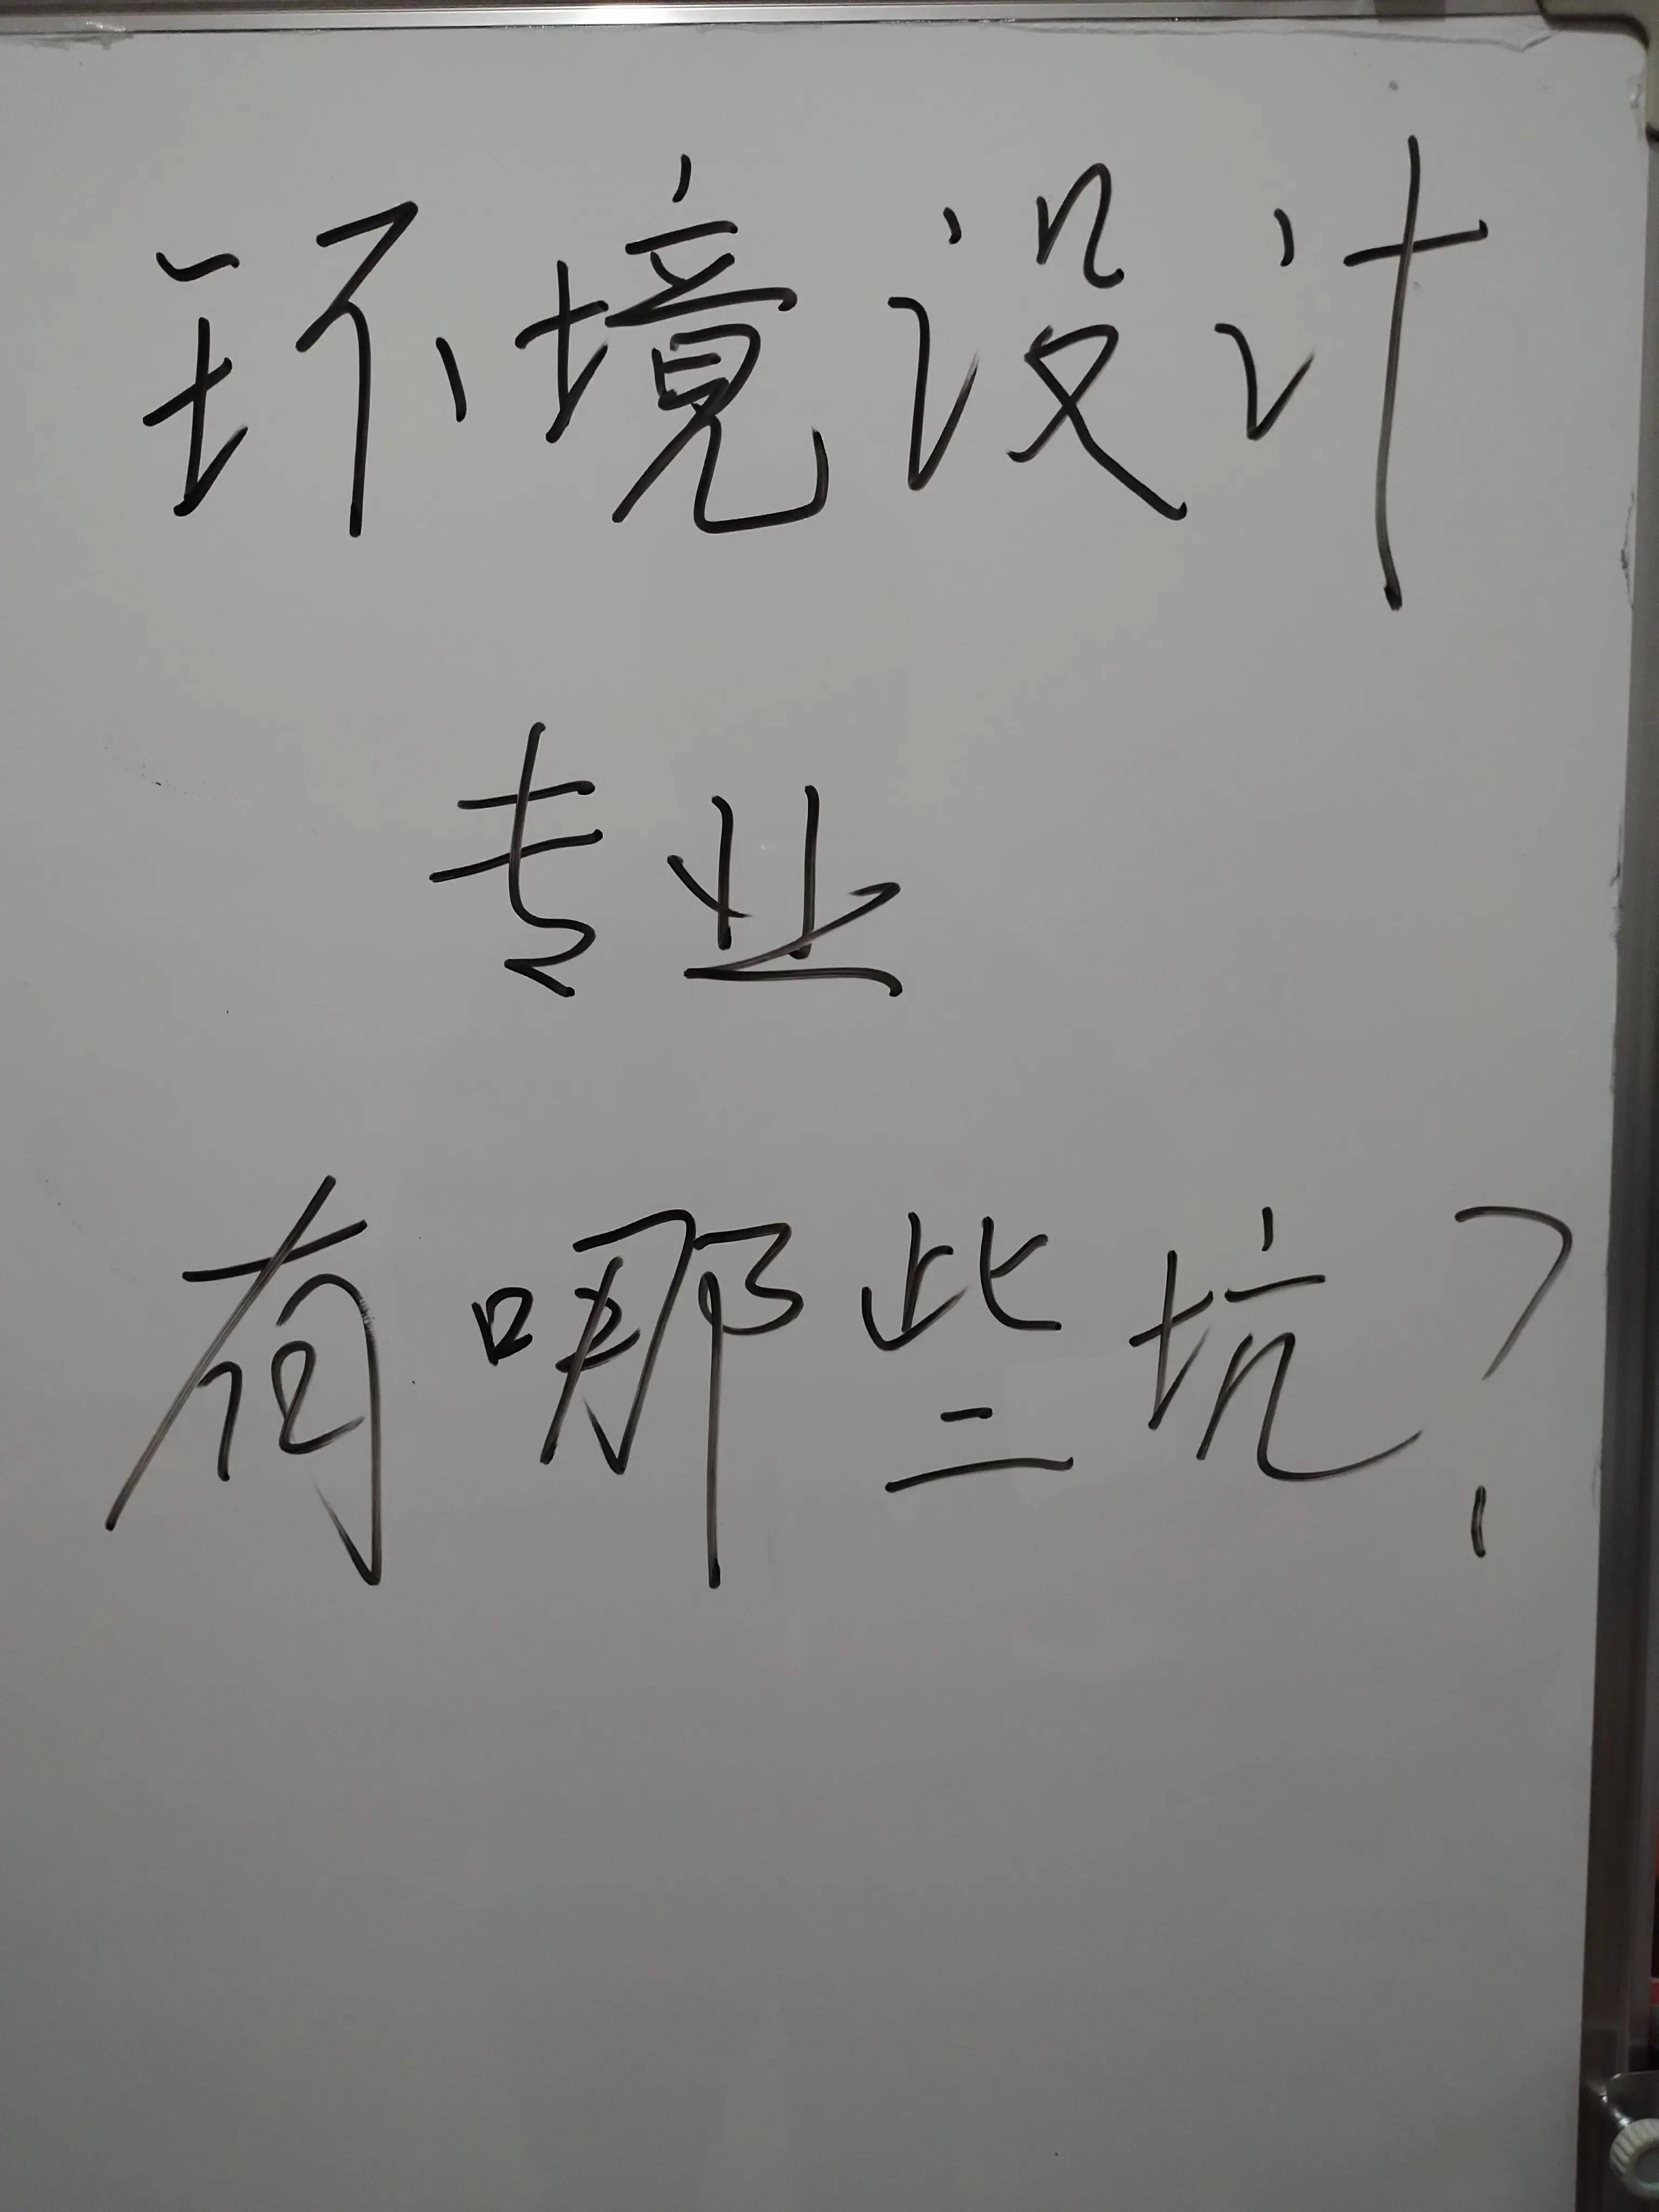 环境设计
专业
有哪些坑?